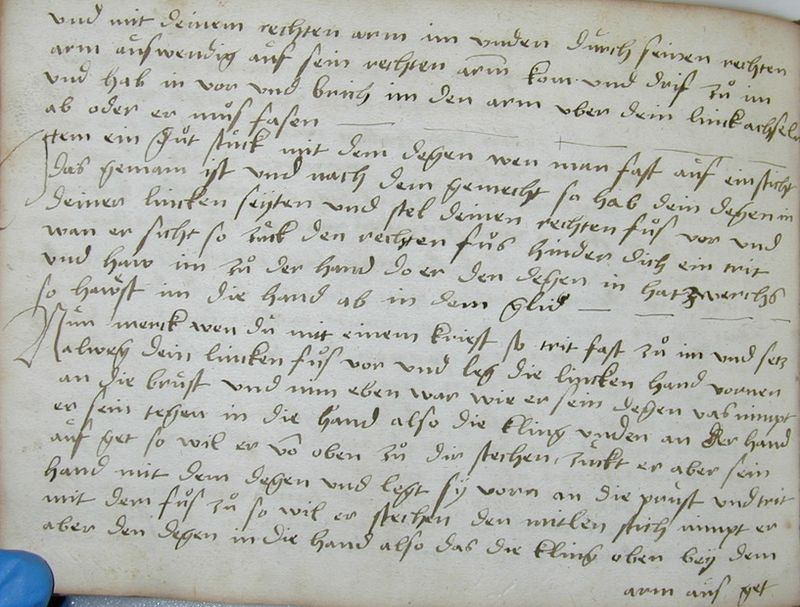 vnd mit deinem rechten arm im vnden durch seinen rechten
arm auswendig auf sein rechten arm kom vnd drif zu im
vnd hab in vor vnd brich im den arm vber dein linck achseln
ab oder er mus fasen
Item ein gut stuck mit dem degen wen man fast auf ein sticht
das gemain ist vnd nach dem gemecht so hab dein degen in
deiner lincken seyten vnd stel deinen rechten fus vor vnd
wan er sicht so zuck den rechten fus hinder dich ein trit
vnd haw im zu der hand do er den degen in hat zwerchs
so hawst im die hand ab in dem glid
Nun merck wen du mit einem kriegst so trit fast zu im vnd setz
alweg dein lincken fus vor vnd leg die lincken hand vornen
an die brust vnd nim eben war wie er sein degen vas nimpt
er sein tegen in die hand also die kling vnden an der hand
aus get so wil er vo oben zu dir stechen, zuckt er aber sein
hand mit dem degen vnd legt sy vorn an die prust vnd trit
mit dem fus zu so wil er stechen den mitlen stich nimpt er
aber den degen in die hand also das die kling oben bey dem
arm aus get